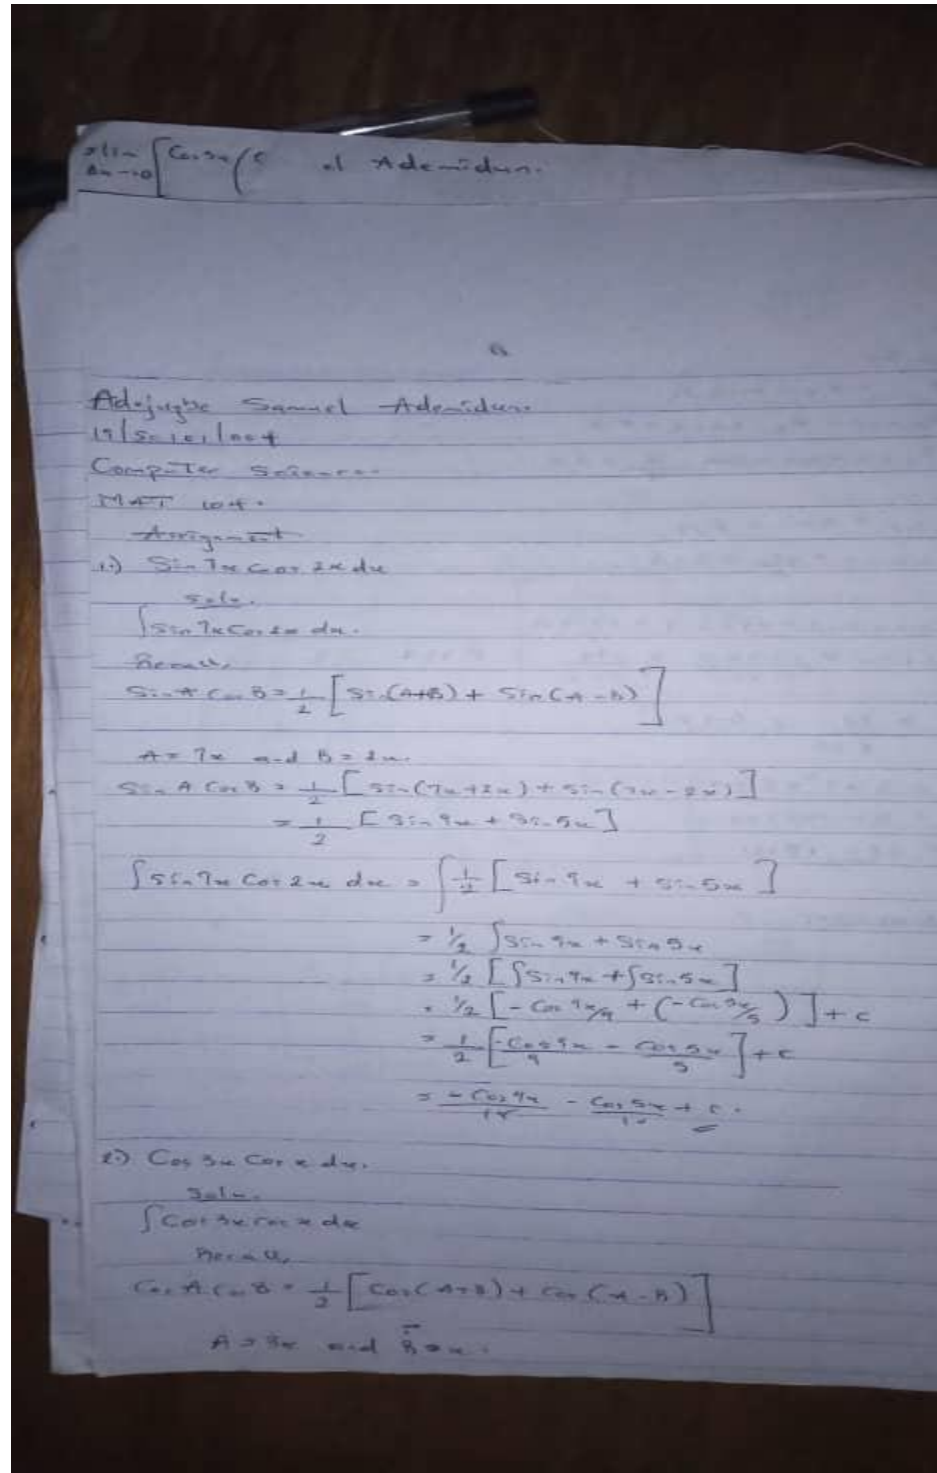 = lim [Cos 5x ( c el Ademidun.
Δx→0
Adejugbe Samuel Ademidun.
Computer Science.
MAT 104.
Assignment
1.) Sin 7x Cos 2x dx
Soln.
∫Sin 7x Cos 2x dx.
Recall,
Sin A Cos B = 1/2 [Sin(A+B) + Sin(A-B)]
A = 7x and B = 2x.
Sin A Cos B = 1/2 [Sin(7x+2x) + Sin(7x-2x)]
= 1/2 [Sin 9x + Sin 5x]
∫Sin 7x Cos 2x dx = ∫1/2 [Sin 9x + Sin 5x]
= 1/2 ∫Sin 9x + Sin 5x
= 1/2 [∫Sin 9x + ∫Sin 5x]
= 1/2 [-Cos 9x/9 + (-Cos 5x/5)] + c
= 1/2 [-Cos 9x/9 - Cos 5x/5] + c
= -Cos 9x/18 - Cos 5x/10 + c.
2.) Cos 3x Cos x dx.
Soln.
∫Cos 3x Cos x dx
Recall,
Cos A Cos B = 1/2 [Cos(A+B) + Cos(A-B)]
A = 3x and B = x.